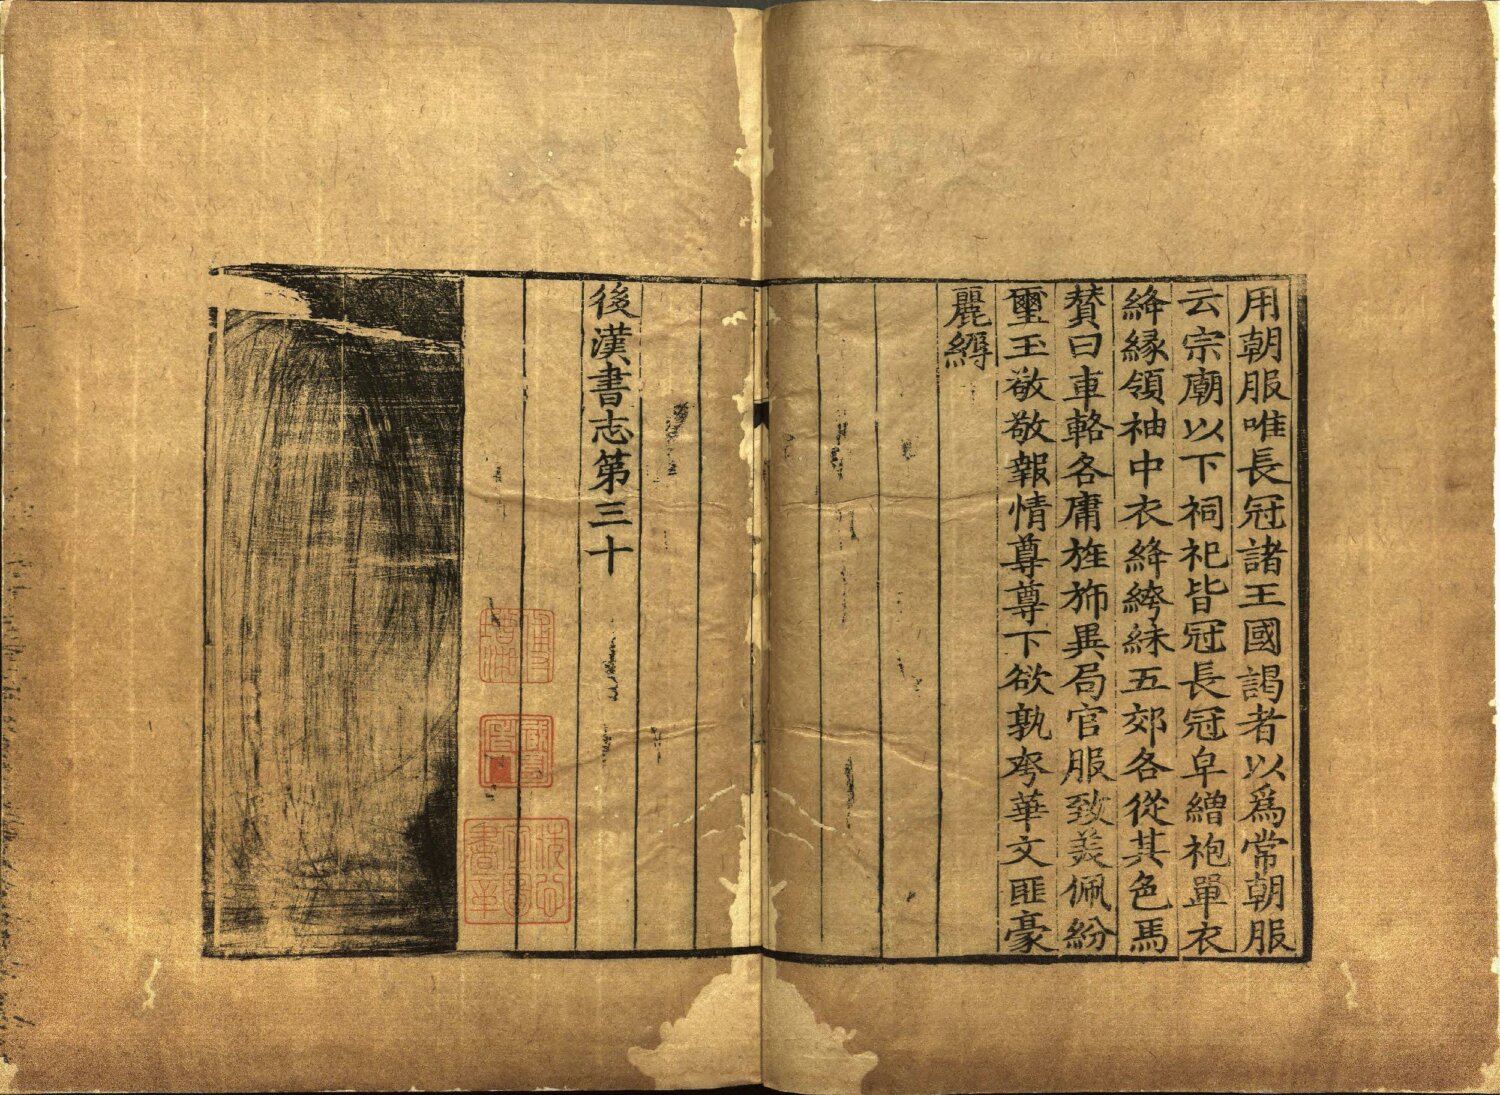 用朝服唯長冠諸王國謁者以爲常朝服
云宗廟以下祠祀皆冠長冠皁繒袍單衣
絳緣領袖中衣絳絝絲五郊各從其色馬
賛曰車輅各庸旌旂異局官服致美佩紛
璽玉敬敬報情尊尊下欲孰夸華文匪豪
麗縟
後漢書志第三十